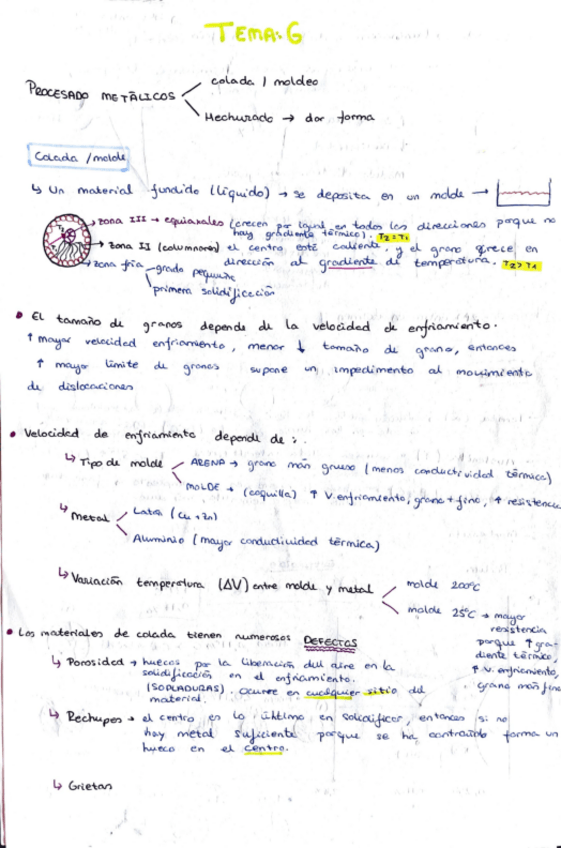 TEMA: 6
PROCESADO METÁLICOS
colada / moldeo
Hechurado → dar forma
Colada /molde
↳ Un material fundido (líquido) → se deposita en un molde →
zona III → equiaxales (crecen por igual en todas las direcciones porque no
hay gradiente térmico). T2 = T1
zona II (columnares) el centro esté caliente, y el grano crece en
dirección al gradiente de temperatura. T2 > T1
zona fría - grado pequeño
primera solidificación
• El tamaño de granos depende de la velocidad de enfriamiento.
↑ mayor velocidad enfriamiento, menor ↓ tamaño de grano, entonces
↑ mayor límite de granos supone un impedimento al movimiento
de dislocaciones
• Velocidad de enfriamiento depende de :.
↳ Tipo de molde
ARENA → grano más grueso (menos conductividad térmica)
MOLDE → (coquilla) ↑ V.enfriamiento, grano + fino, ↑ resistencia
↳ Metal
Latón (Cu + Zn)
Aluminio (mayor conductividad térmica)
↳ Variación temperatura (ΔV) entre molde y metal
molde 200ºC
molde 25ºC → mayor
resistencia
porque ↑ gra-
diente térmico,
↑ V. enfriamiento,
grano más fino
• Los materiales de colada tienen numerosos DEFECTOS
↳ Porosidad → huecos por la liberación del aire en la
solidificación en el enfriamiento.
(SOPLADURAS). Ocurre en cualquier sitio del
material.
↳ Rechupes → el centro es lo último en solidificar, entonces si no
hay metal suficiente porque se ha contraido forma un
hueco en el centro.
↳ Grietas